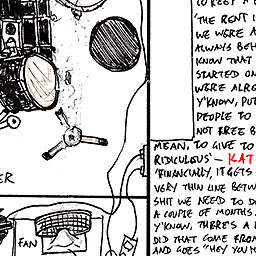 'THE RENT I
WE WERE A
ALWAYS BEH
KNOW THAT
STARTED ON
WERE ALRE
Y'KNOW, PU
PEOPLE TO
NOT FREE B
MEAN, TO GIVE TO
RIDICULOUS' – KAT
'FINANCIALLY, IT GETS
VERY THIN LINE BETW
SHIT WE NEED TO D
A COUPLE OF MONTHS.
Y'KNOW, THERE'S A
DID THAT COME FROM
AND GOES "HEY YOU H
ER
FAN